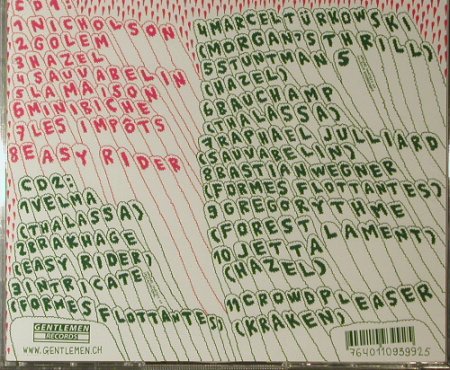 CD1:
1 NICHOLSON
2 GOLEM
3 HAZEL
4 SAUVABELIN
5 LA MAISON
6 MINIBICHE
7 LES IMPÔTS
8 EASY RIDER
CD2:
1 VELMA
(THALASSA)
2 BRAKHAGE
(EASY RIDER)
3 INTRICATE
(FORMES FLOTTANTES)
4 MARCEL TÜRKOWSKI
(MORGAN'S THRILL)
5 STUNTMAN 5
(HAZEL)
6 BAUCHAMP
(THALASSA)
7 RAPHAEL JULLIARD
(SAUVABELIN)
8 BASTIAN WEGNER
(FORMES FLOTTANTES)
9 GREGORYTHME
(FOREST LAMENT)
10 JETTA
(HAZEL)
11 CROWDPLEASER
(KRAKEN)
GENTLEMEN
RECORDS
WWW.GENTLEMEN.CH
7640110939925